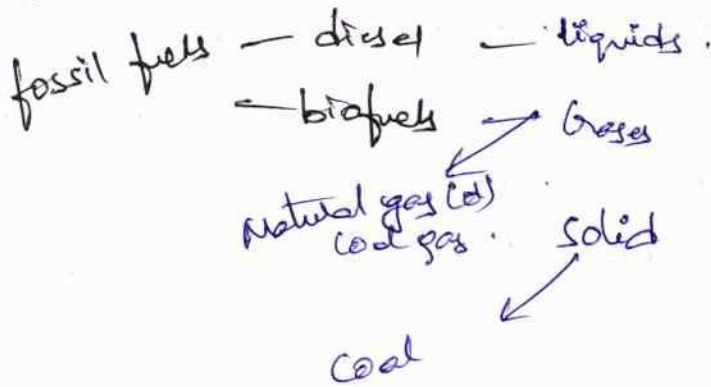 fossil fuels — diesel — liquids.
— biofuels — Gases
Natural gas (or)
coal gas. solid
coal